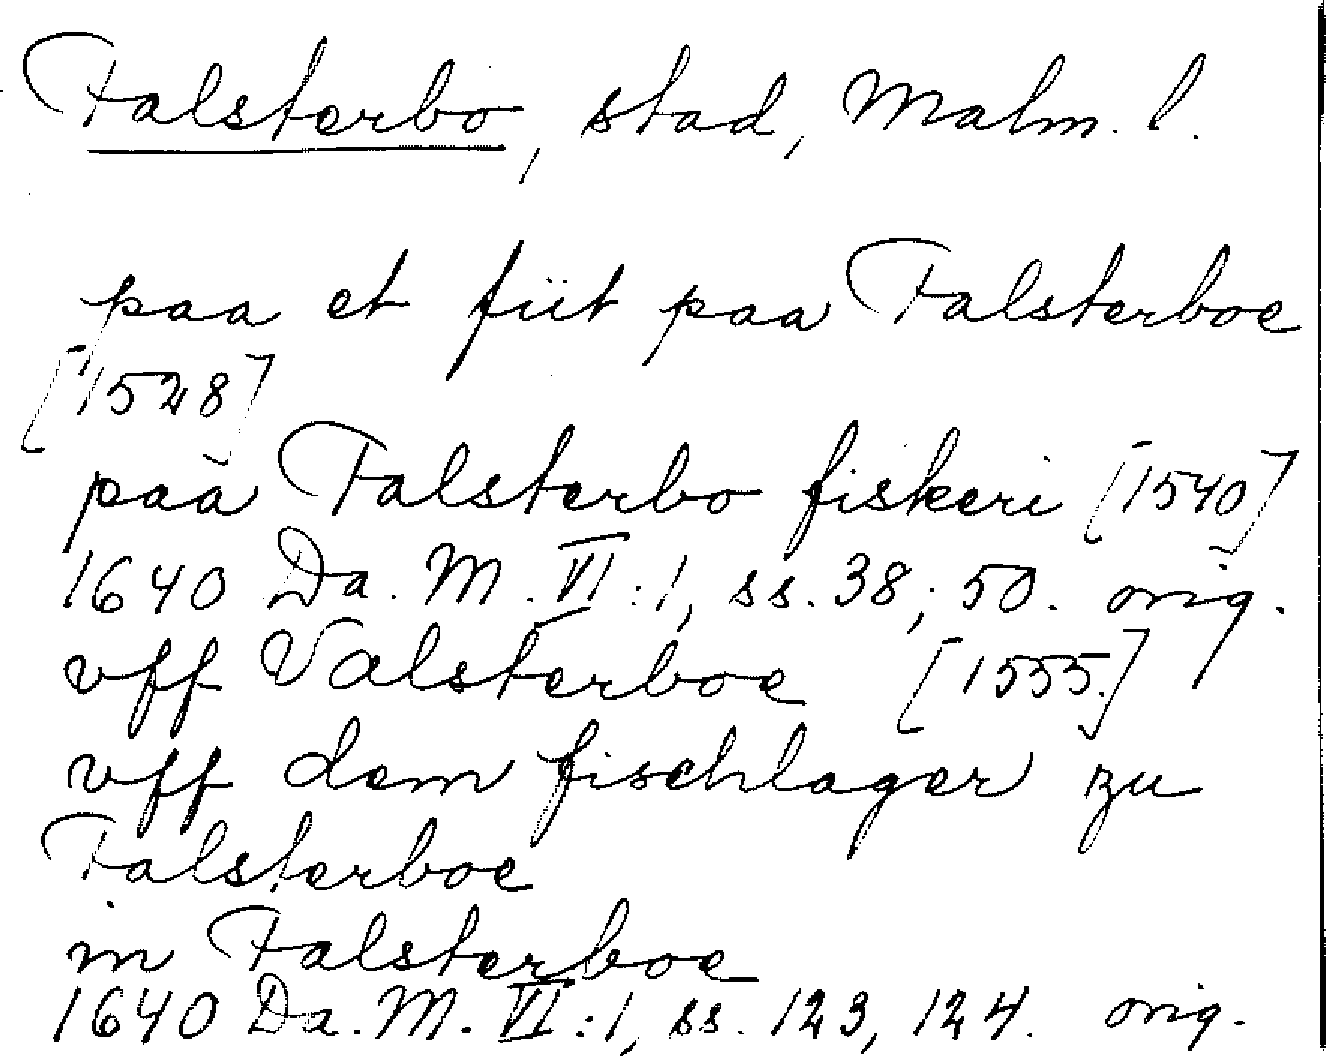 Falsterbo, stad, Malm. l.
paa et fiit paa Falsterboe
[1528]
paa Falsterbo fiskeri [1540]
1640 Da. M. VI:1, ss. 38; 50. orig.
vff Valsterboe [1555.]
vff dem fischlager zu
Falsterboe
in Falsterboe
1640 Da. M. VI:1, ss. 123, 124. orig.